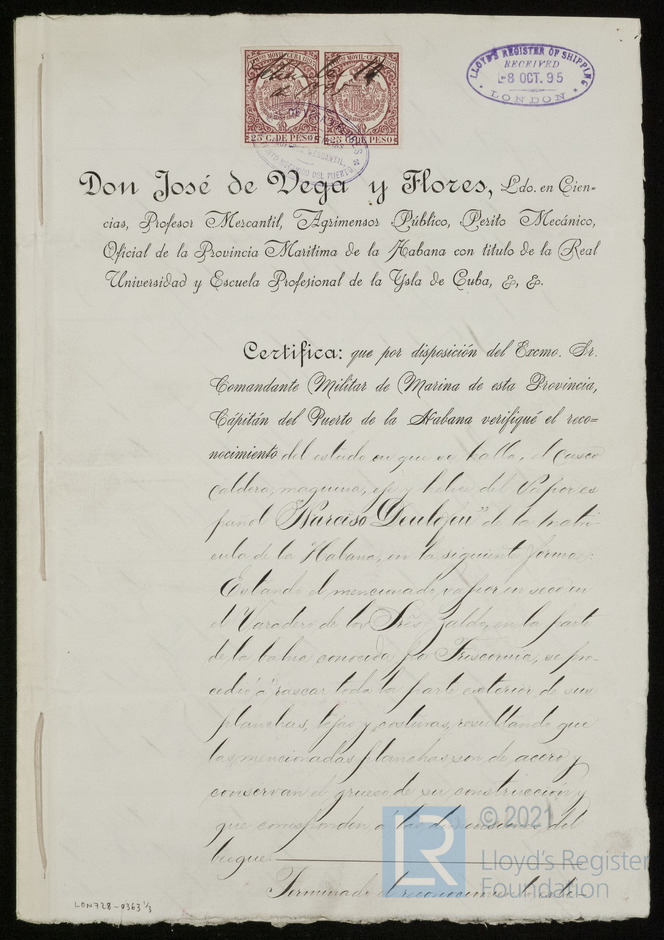 LLOYD'S REGISTER OF SHIPPING
RECEIVED
8 OCT. 95
LONDON
25 C. DE PESO 25 C. DE PESO
Don José de Vega y Flores, Ldo. en Cien-
cias, Profesor Mercantil, Agrimensor Público, Perito Mecánico,
Oficial de la Provincia Marítima de la Habana con titulo de la Real
Universidad y Escuela Profesional de la Ysla de Cuba, &, &.
Certifica: que por disposición del Excmo. Sr.
Comandante Militar de Marina de esta Provincia,
Capitán del Puerto de la Habana verifiqué el reco-
nocimiento del estado en que se halla, el casco
caldera, maquina, eje y helice del Vapor es
pañol "Narciso Deulofeu" de la matri
cula de la Habana, en la siguiente forma:
Estando el mencionado vapor en seco en
el Varadero de los Sres. Galdo, en la parte
de la bahia conocida por Triscornia, se pro-
cedió á rascar toda la parte exterior de sus
planchas, tojas y costuras, resultando que
las mencionadas planchas son de acero y
conservan el grueso de su construccion y
que corresponden a las dimensiones del
buque
Terminado el reconocimiento
LON728-0363 1/3
© 2021
LR
Lloyd's Register
Foundation